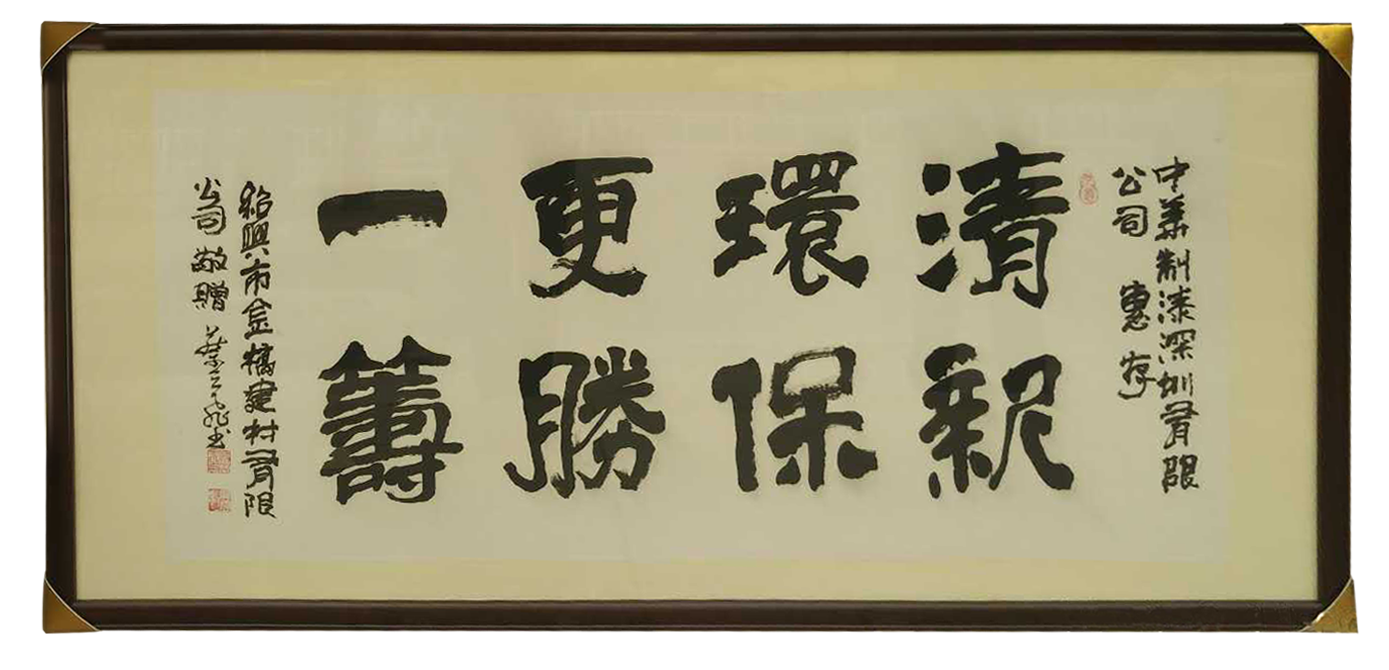 中華制漆深圳有限
公司 惠存
清新
環保
更勝
一籌
紹興市金橋建材有限
公司 敬贈